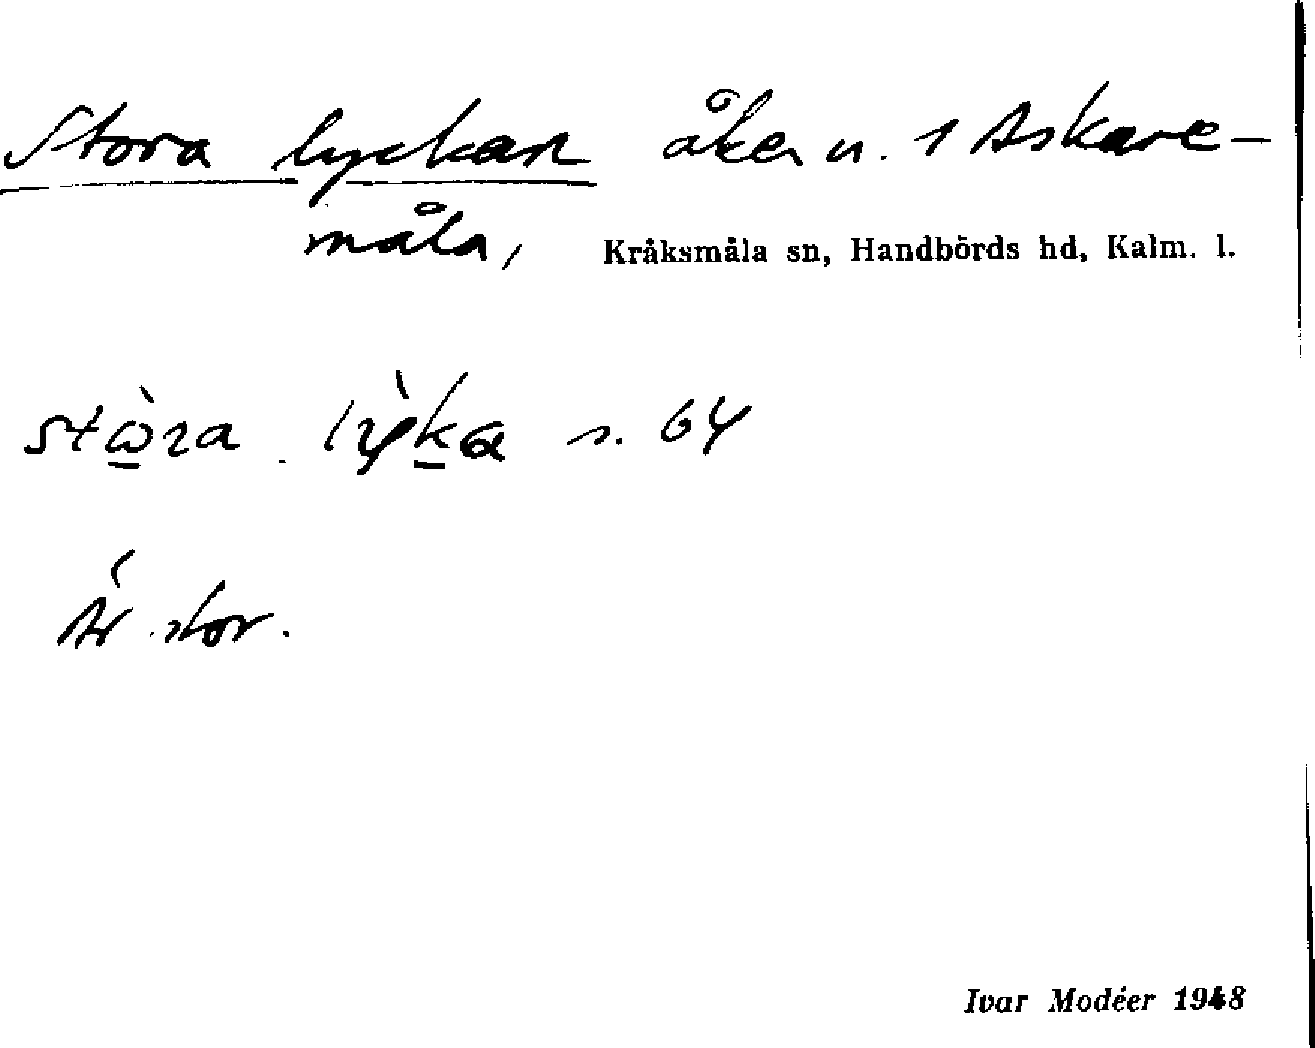 Stora lyckan åker n. 1 Askare-
måla, Kråksmåla sn, Handbörds hd, Kalm. l.
stὼ̠ra lỳk̠a s. 64
Är stor.
Ivar Modéer 1948